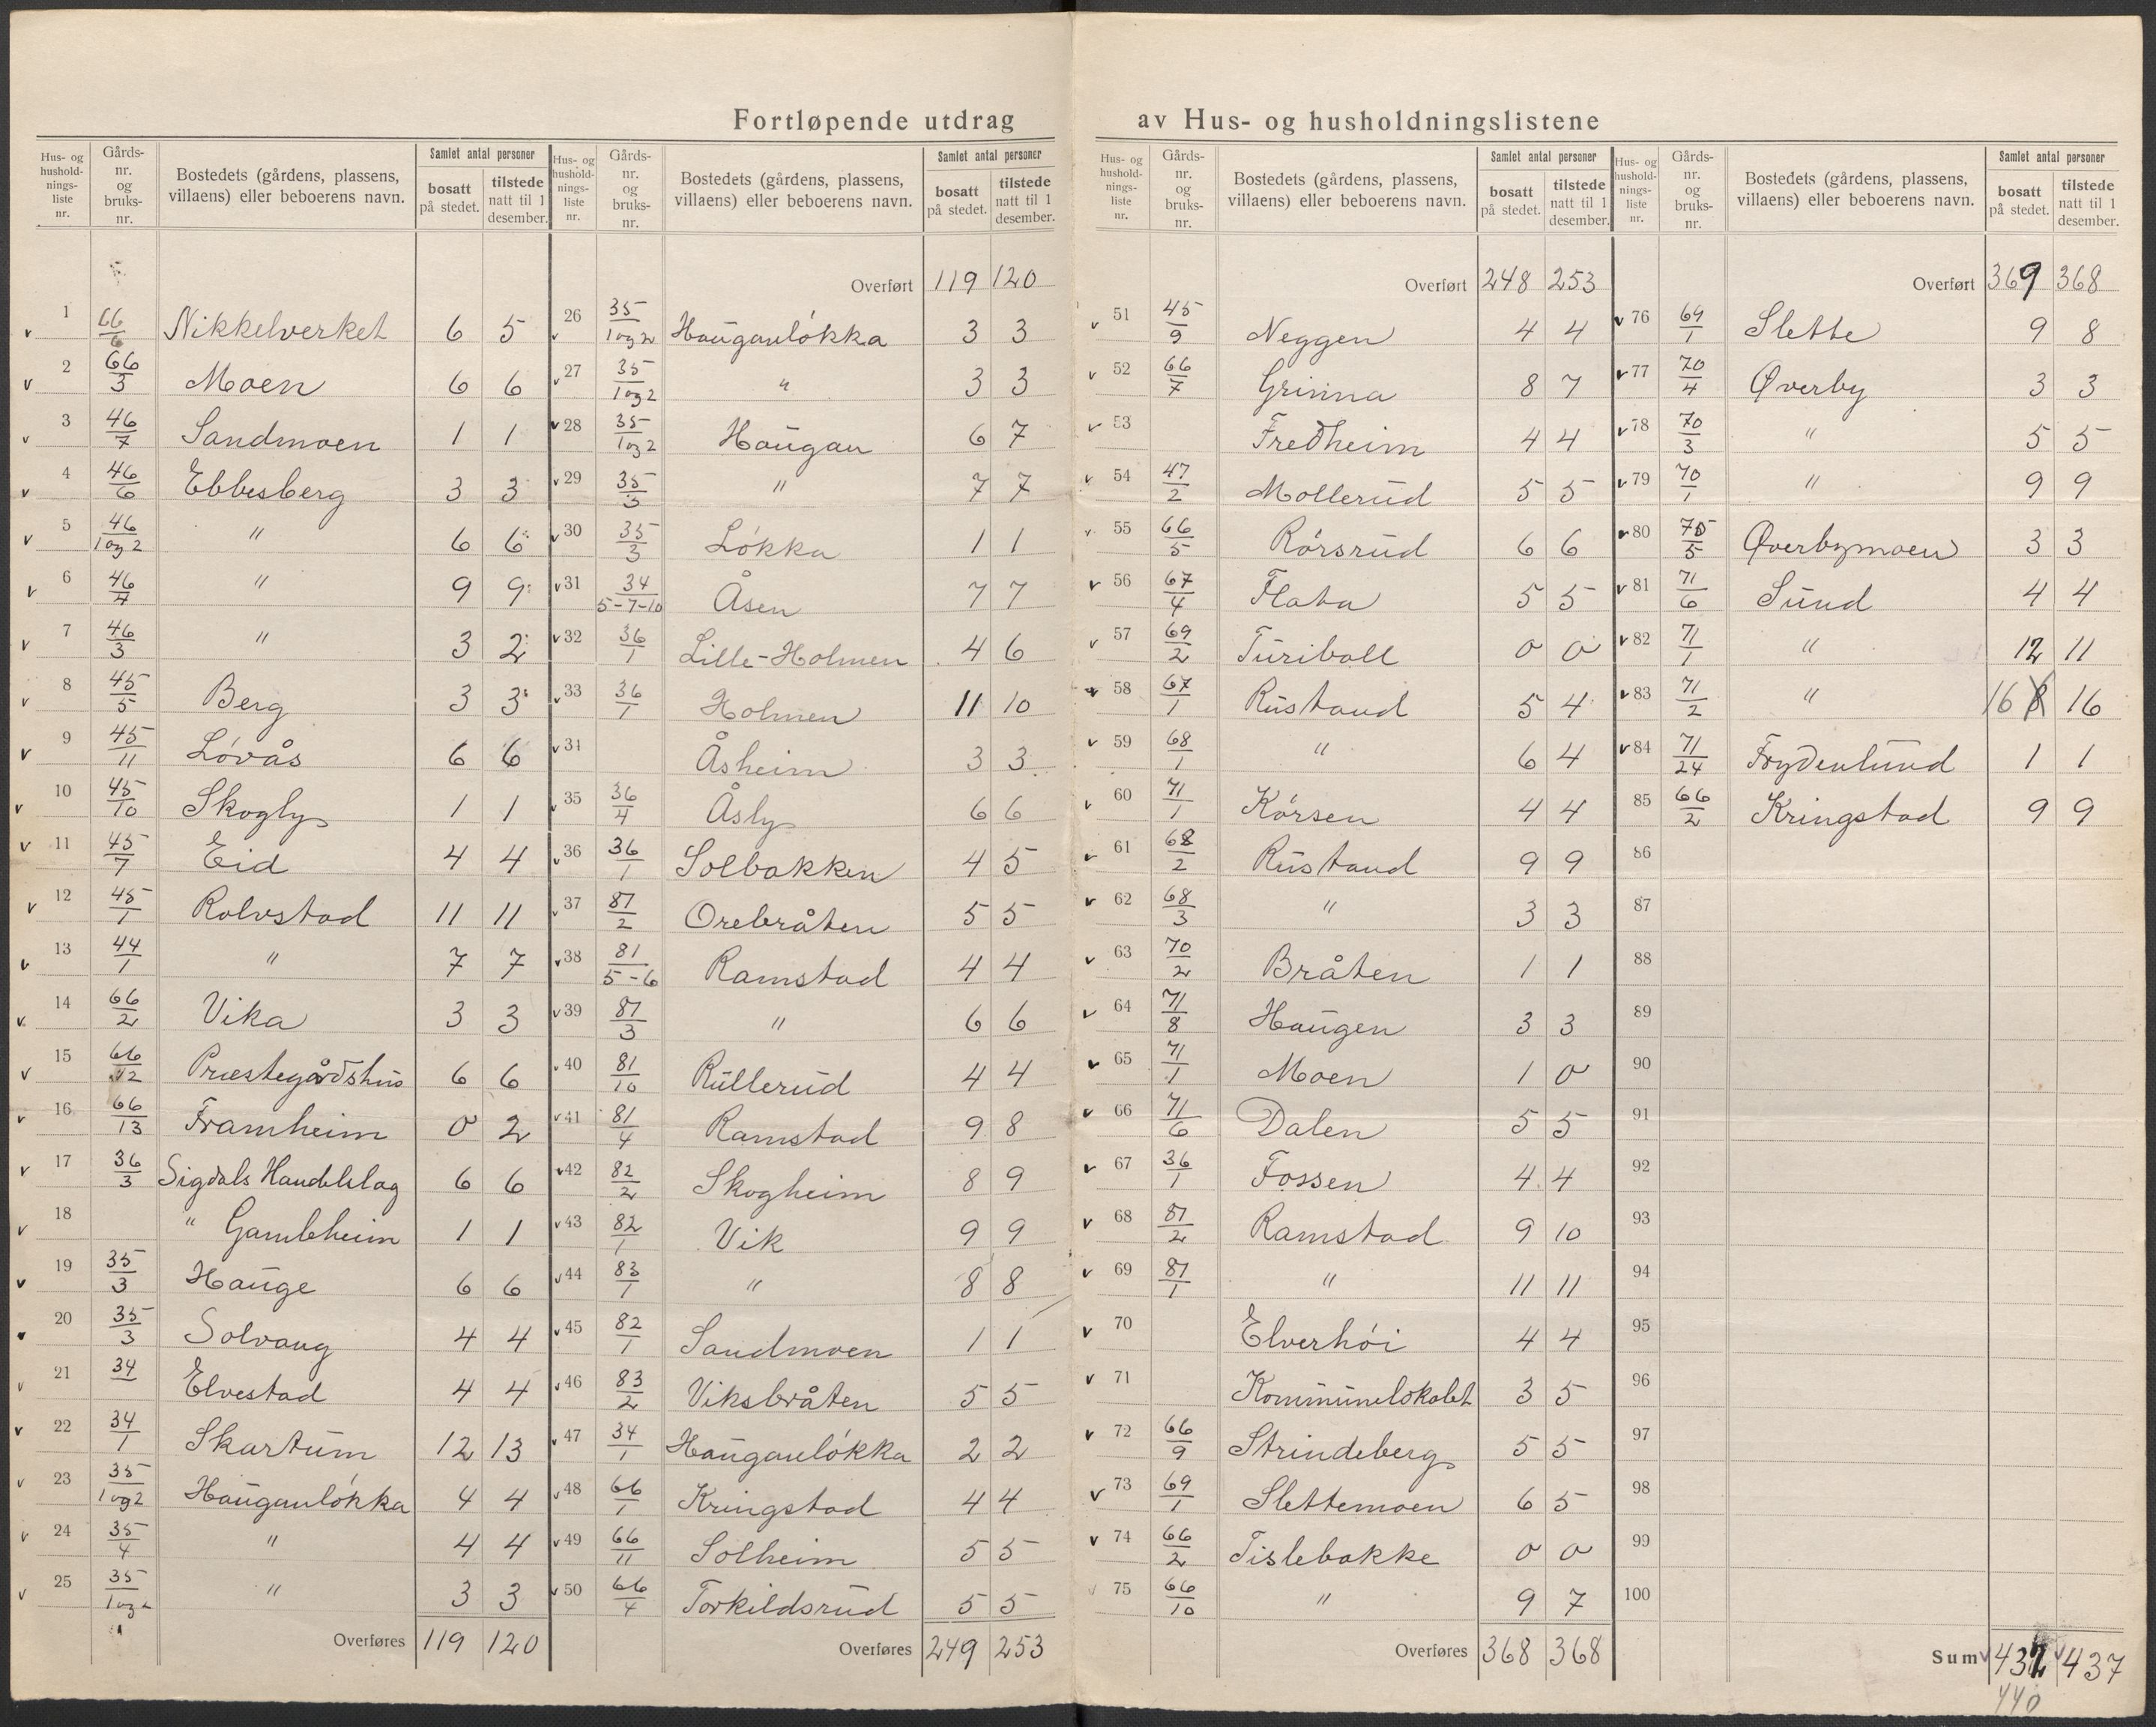 Fortløpende utdrag av Hus- og husholdningslistene
Hus- og husholdnings-liste nr. | Gårds-nr. og bruks-nr. | Bostedets (gårdens, plassens, villaens) eller beboerens navn. | Samlet antal personer bosatt på stedet. | tilstede natt til 1 desember.
1 66/6 Nikkelverket 6 5
2 66/3 Moen 6 6
3 46/7 Sandmoen 1 1
4 46/6 Ebbesberg 3 3
5 46/1 og 2 " 6 6
6 46/4 " 9 9
7 46/3 " 3 2
8 45/5 Berg 3 3
9 45/11 Lövås 6 6
10 45/10 Skogly 1 1
11 45/7 Eid 4 4
12 45/1 Rolvstad 11 11
13 44/1 " 7 7
14 66/2 Vika 3 3
15 66/12 Præstegårdshus 6 6
16 66/13 Framheim 0 2
17 36/3 Sigdals Handelslag 6 6
18 " Gamleheim 1 1
19 35/3 Hauge 6 6
20 35/3 Solvang 4 4
21 34 Elvestad 4 4
22 34/1 Skartum 12 13
23 35/1 og 2 Hauganlökka 4 4
24 35/4 " 4 4
25 35/1 og 2 " 3 3
Overføres 119 120
Hus- og husholdnings-liste nr. | Gårds-nr. og bruks-nr. | Bostedets (gårdens, plassens, villaens) eller beboerens navn. | Samlet antal personer bosatt på stedet. | tilstede natt til 1 desember.
Overført 119 120
26 35/1 og 2 Hauganlökka 3 3
27 35/1 og 2 " 3 3
28 35/1 og 2 Haugan 6 7
29 35/3 " 7 7
30 35/3 Lökka 1 1
31 34/5-7-10 Åsen 7 7
32 36/1 Lille-Holmen 4 6
33 36/1 Holmen 11 10
34 Åsheim 3 3
35 36/4 Åsly 6 6
36 36/1 Solbakken 4 5
37 87/2 Orebråten 5 5
38 81/5-6 Ramstad 4 4
39 87/3 " 6 6
40 81/10 Rullerud 4 4
41 81/4 Ramstad 9 8
42 82/2 Skogheim 8 9
43 82/1 Vik 9 9
44 83/1 " 8 8
45 82/1 Sandmoen 1 1
46 83/2 Viksbråten 5 5
47 34/1 Hauganlökka 2 2
48 66/1 Kringstad 4 4
49 66/11 Solheim 5 5
50 66/4 Torkildsrud 5 5
Overføres 249 253
Hus- og husholdnings-liste nr. | Gårds-nr. og bruks-nr. | Bostedets (gårdens, plassens, villaens) eller beboerens navn. | Samlet antal personer bosatt på stedet. | tilstede natt til 1 desember.
Overført 248 253
51 45/9 Neggen 4 4
52 66/7 Grinna 8 7
53 Fredheim 4 4
54 47/2 Mollerud 5 5
55 66/5 Rörsrud 6 6
56 67/4 Flata 5 5
57 69/2 Turiball 0 0
58 67/1 Rustand 5 4
59 68/1 " 6 4
60 71/1 Körsen 4 4
61 68/2 Rustand 9 9
62 68/3 " 3 3
63 70/2 Bråten 1 1
64 71/8 Haugen 3 3
65 71/1 Moen 1 0
66 71/6 Dalen 5 5
67 36/1 Fossen 4 4
68 87/2 Ramstad 9 10
69 87/1 " 11 11
70 Elverhöi 4 4
71 Kommunelokalet 3 5
72 66/9 Strindeberg 5 5
73 69/1 Slettemoen 6 5
74 66/2 Tislebakke 0 0
75 66/10 " 9 7
Overføres 368 368
Hus- og husholdnings-liste nr. | Gårds-nr. og bruks-nr. | Bostedets (gårdens, plassens, villaens) eller beboerens navn. | Samlet antal personer bosatt på stedet. | tilstede natt til 1 desember.
Overført 369 368
76 69/1 Slette 9 8
77 70/4 Øverby 3 3
78 70/3 " 5 5
79 70/1 " 9 9
80 70/5 Øverbymoen 3 3
81 71/6 Sund 4 4
82 71/1 " 12 11
83 71/2 " 16 8 16
84 71/24 Frydenlund 1 1
85 66/2 Kringstad 9 9
86
87
88
89
90
91
92
93
94
95
96
97
98
99
100
Sum 432 437
440